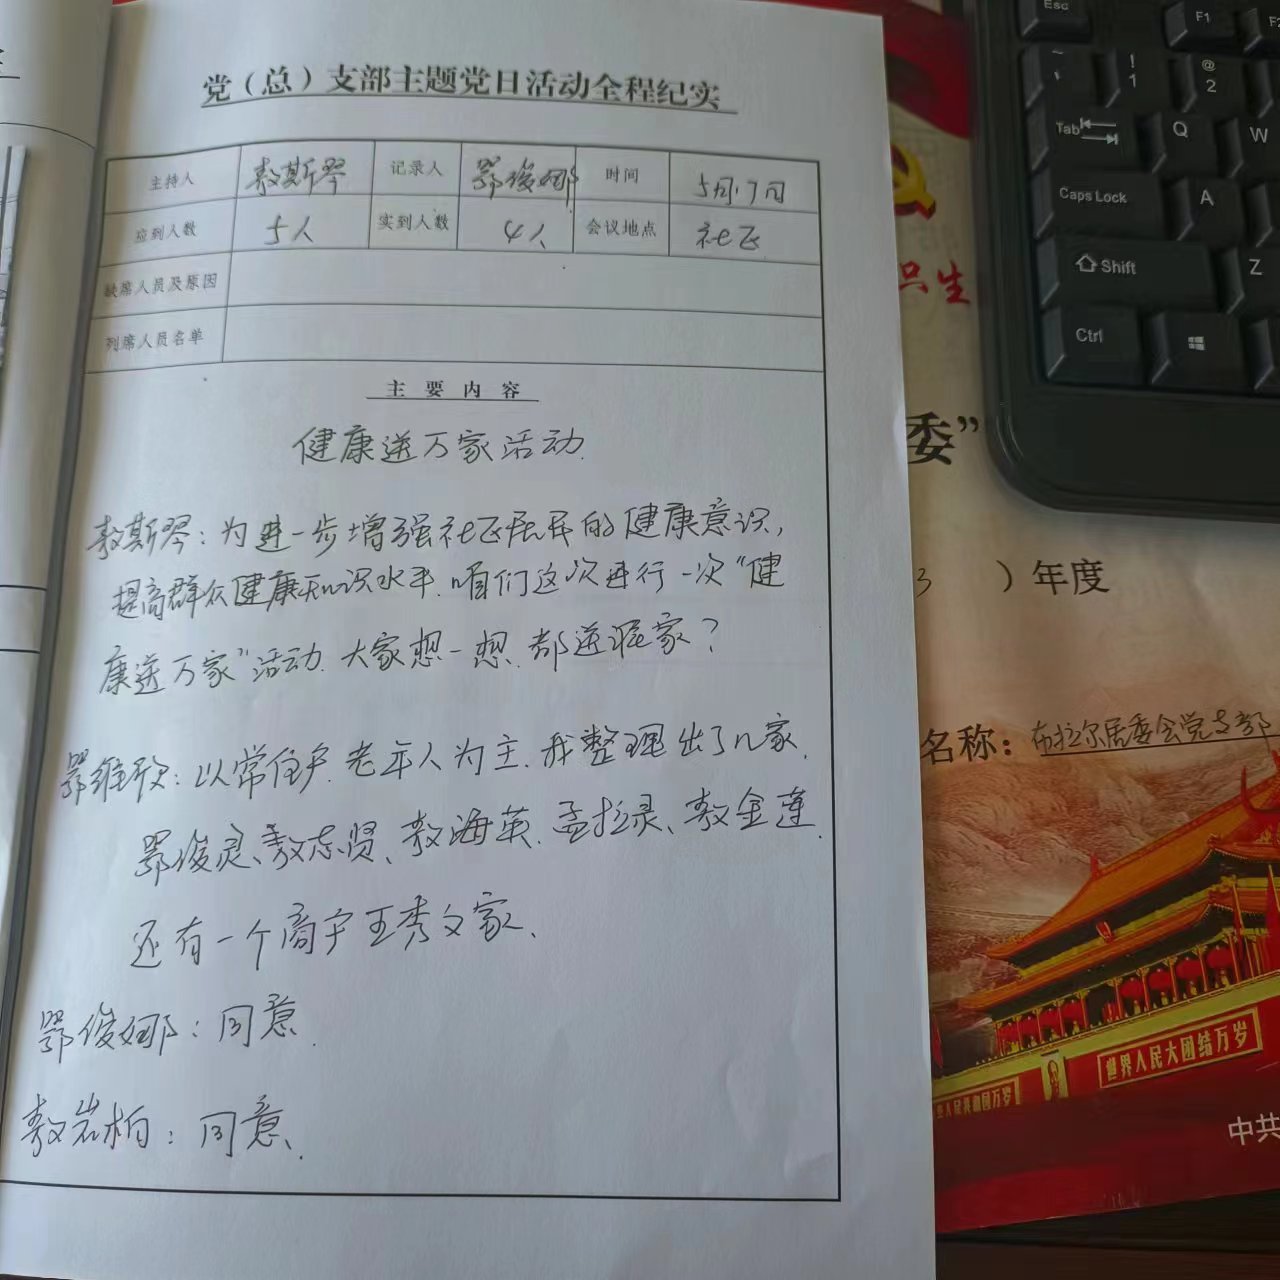 党（总）支部主题党日活动全程纪实
主持人 敖斯琴 记录人 鄂俊娜 时间 5月17日
应到人数 5人 实到人数 4人 会议地点 社区
缺席人员及原因
列席人员名单
主要内容
健康送万家活动.
敖斯琴：为进一步增强社区居民的健康意识，
提高群众健康知识水平.咱们这次进行一次“健
康送万家”活动.大家想一想.都送谁家？
以常住户.老年人为主.我整理出了几家.
鄂俊灵、敖志贤、敖海英.孟拉录、敖金莲.
还有一个商户王秀文家.
鄂俊娜：同意.
敖岩柏：同意.
Esc F1 F2
! 1 @ 2
Tab Q W
Caps Lock A
Shift Z
Ctrl
只生
委”
3 ）年度
名称：布拉尔居委会党支部
世界人民大团结万岁
人民共和国万岁
中共